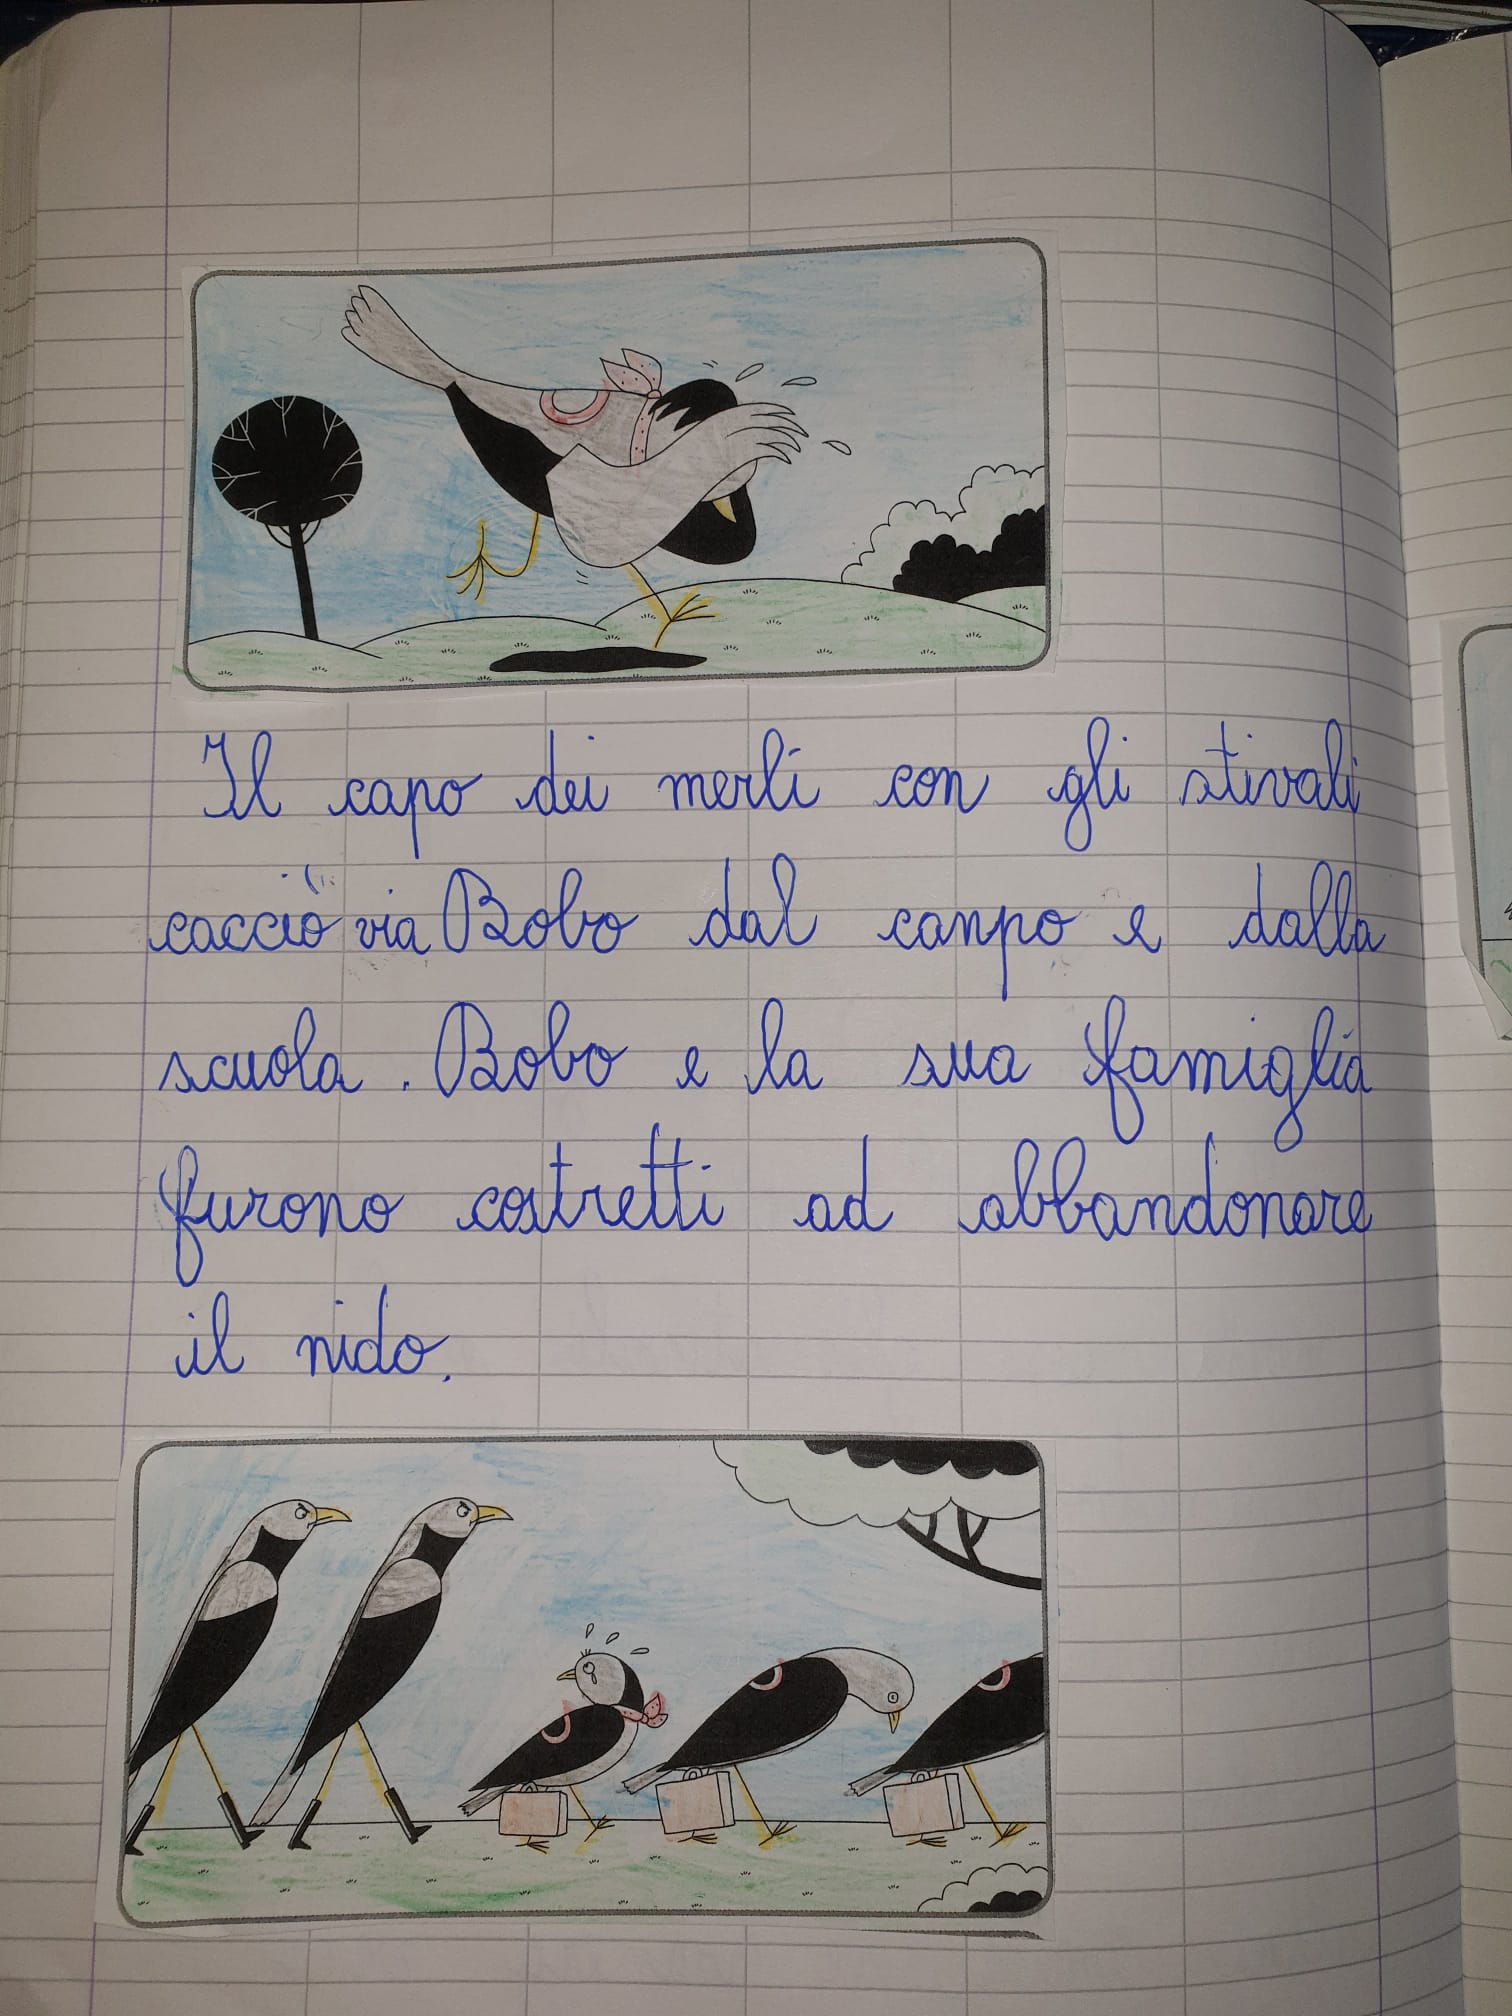 Il capo dei merli con gli stivali
cacciò via Bobo dal canpo e dalla
scuola. Bobo e la sua famiglia
furono costretti ad abbandonare
il nido.